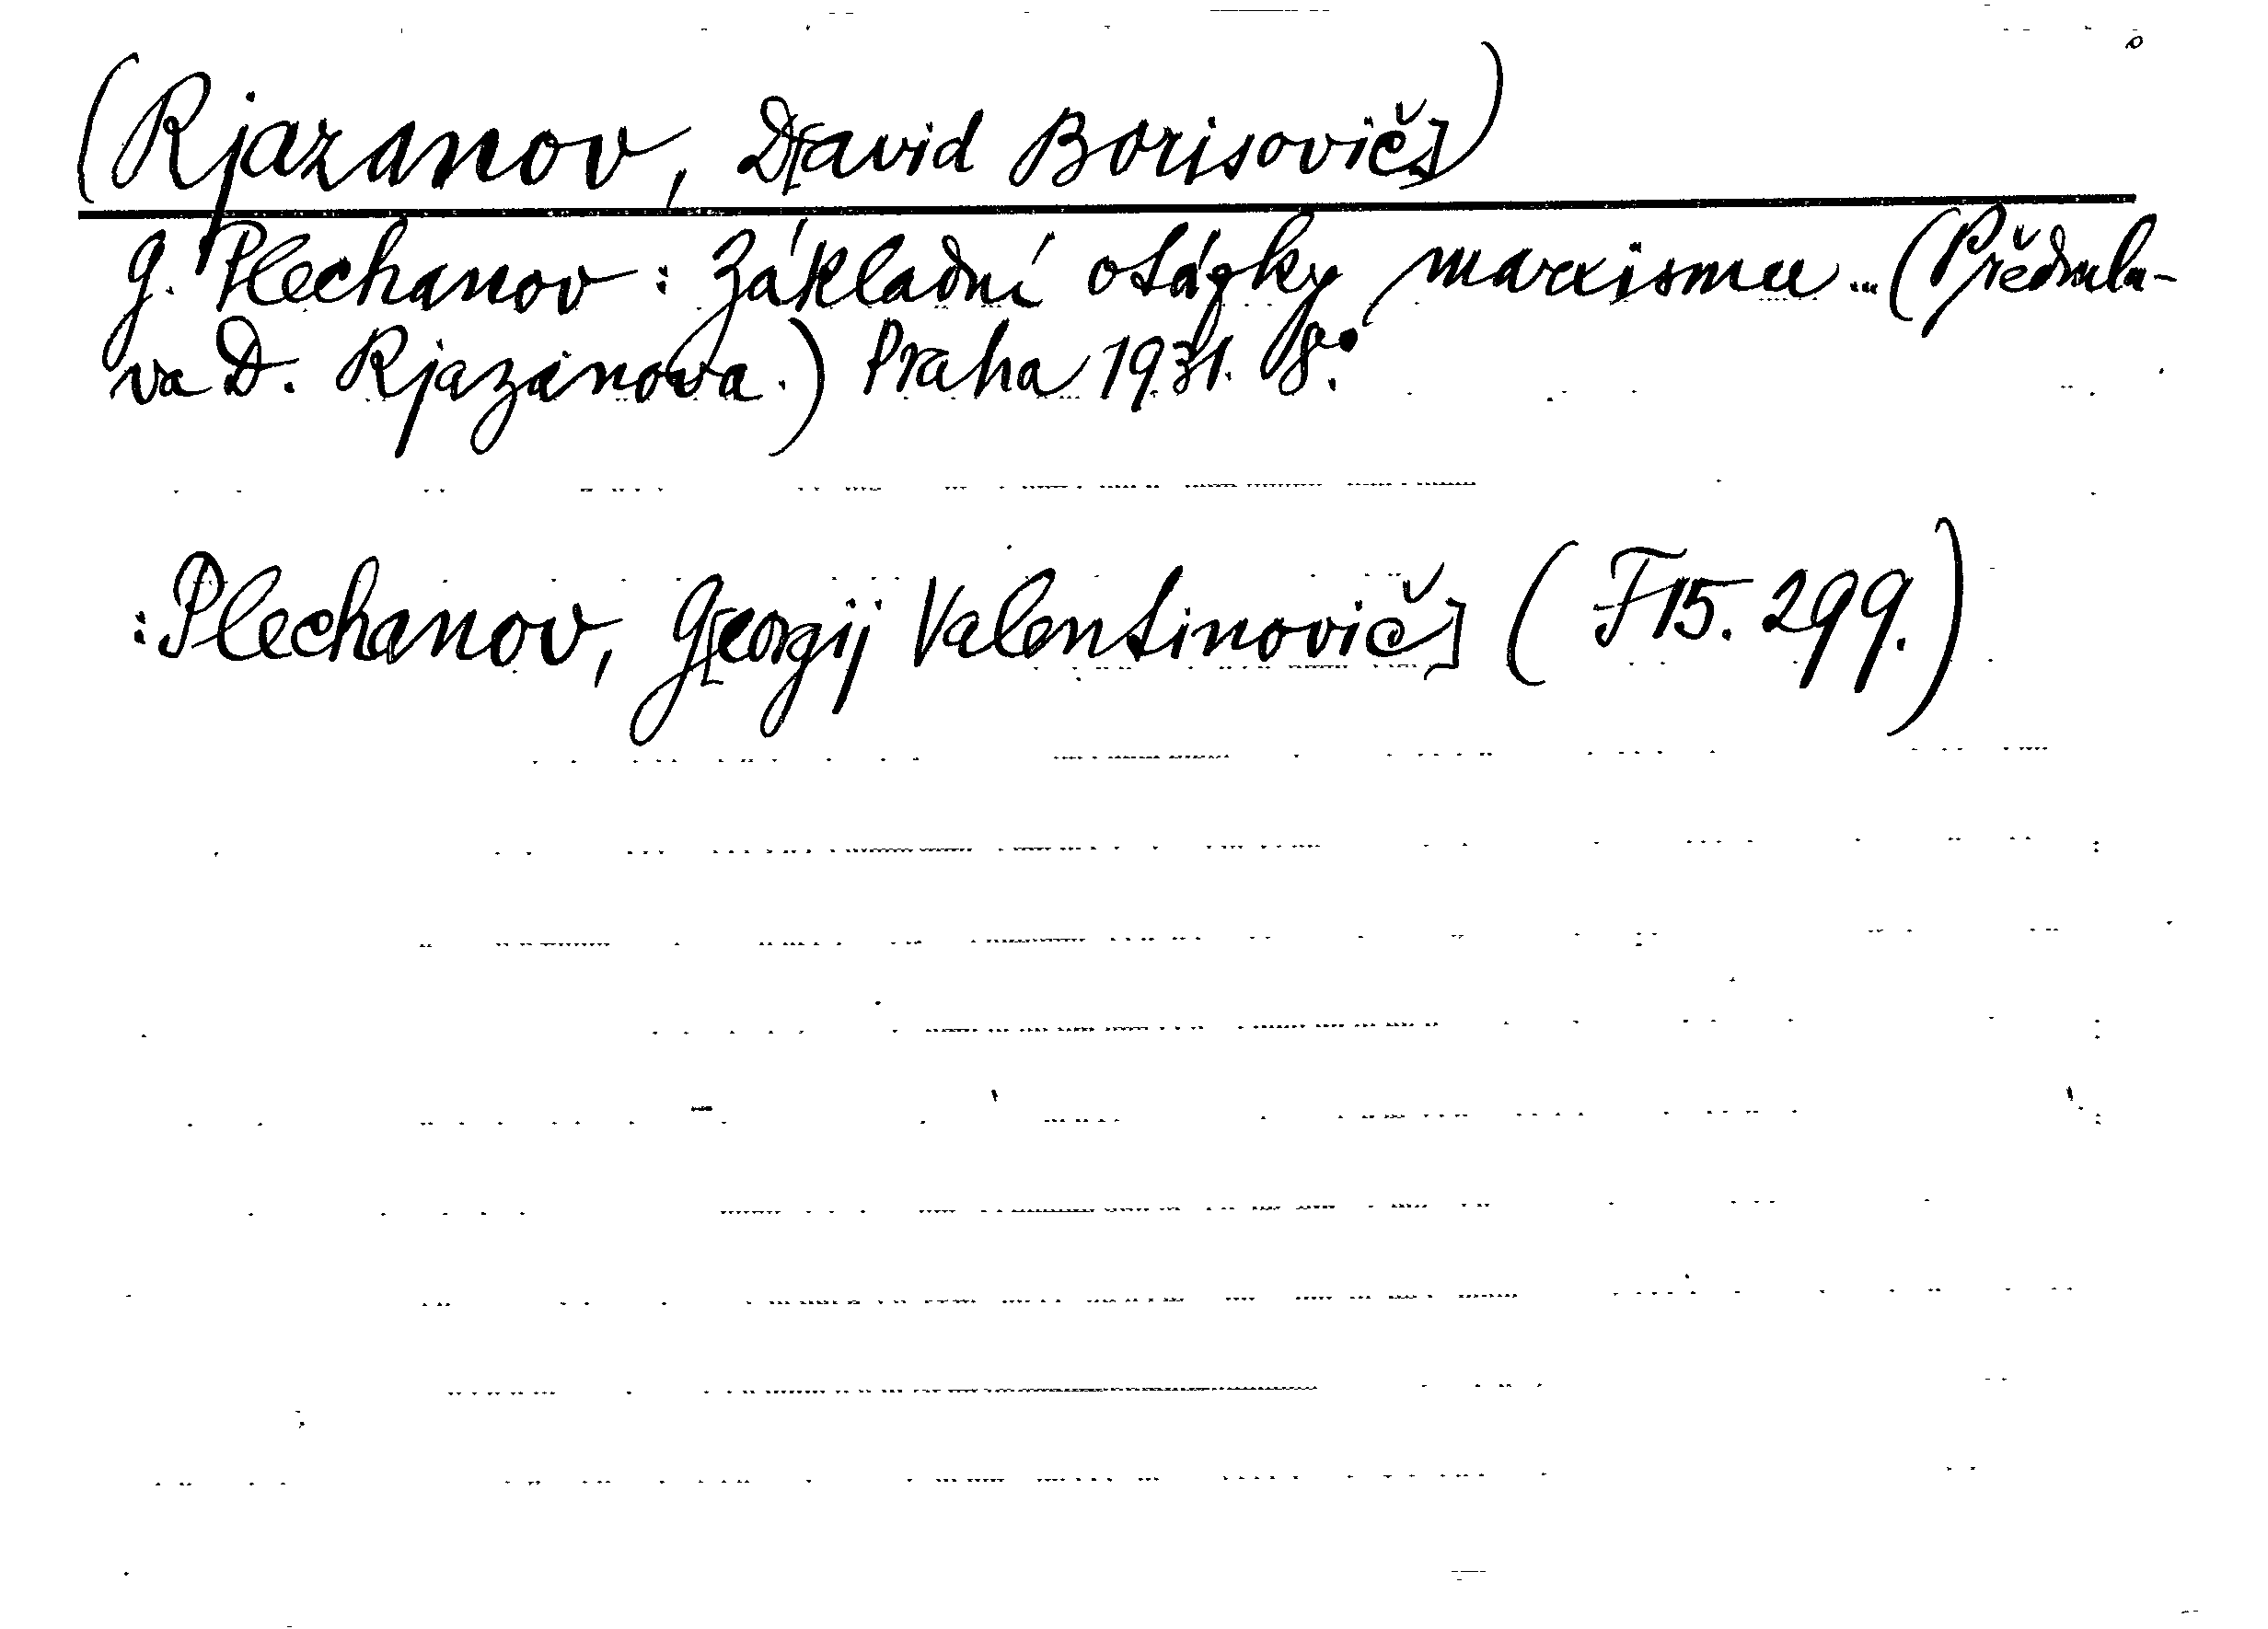 (Rjazanov, D[avid Borisovič])
G. Plechanov: Základní otázky marxismu... (Předmlu-
va D. Rjazanova.) Praha 1931. 8°.
:Plechanov, G[eorgij Valentinovič] (F 15.299.)